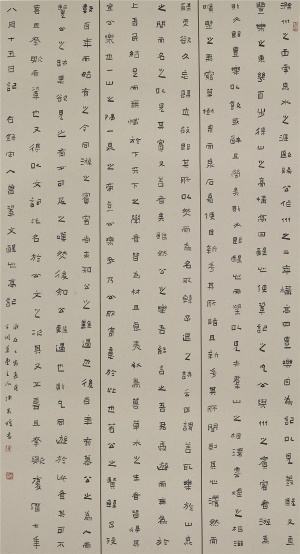 滁州之西南泉水之涯歐陽公作州之二年構亭曰豐樂自為記以見其名之義既又直
豐樂之東幾百步得山之高構亭曰醒心使鞏記之凡公與州之賓客者遊焉
則必即豐樂以飲或醉且勞矣則必即醒心而望以見夫群山之相環雲煙之相滋
曠野之無窮草樹眾而泉石嘉使目新乎其所睹耳新乎其所聞則其心灑然而
醒更欲久而忘歸也故即其所以然而為名取韓子退之北湖之詩云噫其可謂善取樂於山泉
之間而名之以見其實又善者矣雖然公之樂吾能言之吾君優游而無為於
上吾民給足而無憾於下天下之學者皆為材且良夷狄鳥獸草木之生者皆得其
宜公樂也一山之隅一泉之旁豈公樂哉乃公所以寄意於此也若公之賢韓子歿
數百年而始有之今同遊之賓客尚未知公之難遇也後百千年有慕公之為人而
覽公之跡思欲見之有不可及之嘆然後知公之難遇也則凡同遊於此者其可不
喜且幸歟而鞏也又得以文詞託名於公文之次其又不喜且幸歟慶曆七年
八月十五日記 右錄宋人曾鞏文醒心亭記